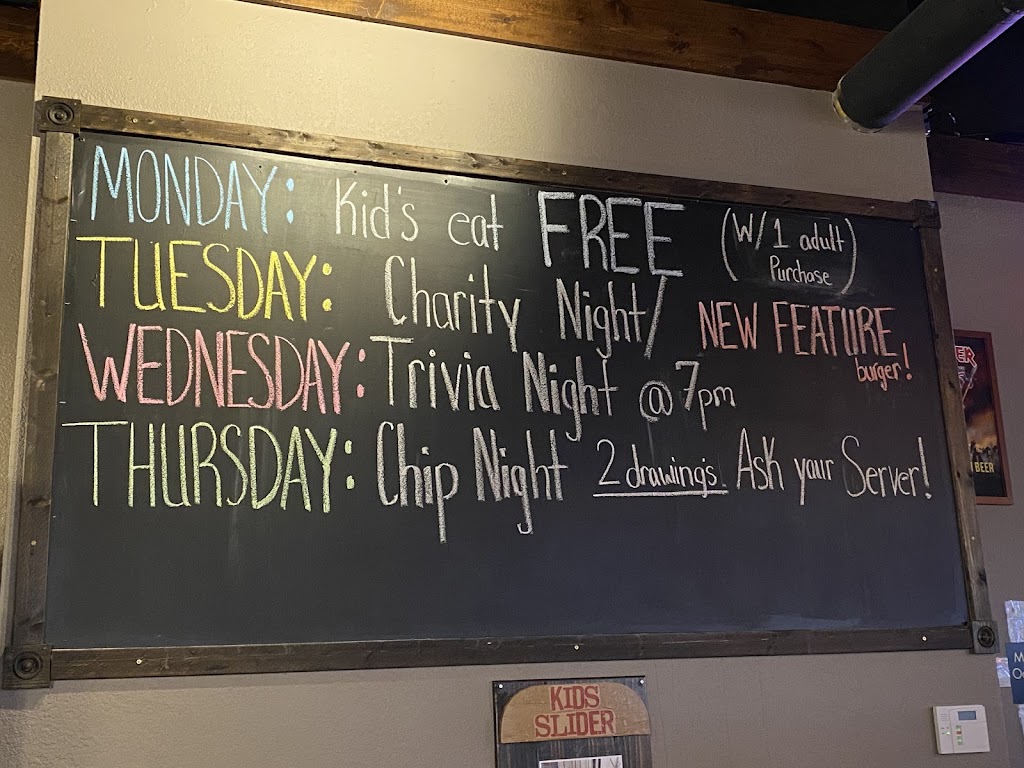 MONDAY: Kid's eat FREE (W/ 1 adult Purchase)
TUESDAY: Charity Night/ NEW FEATURE burger!
WEDNESDAY: Trivia Night @ 7pm
THURSDAY: Chip Night 2 drawing's Ask your Server!
BEER
KIDS
SLIDER